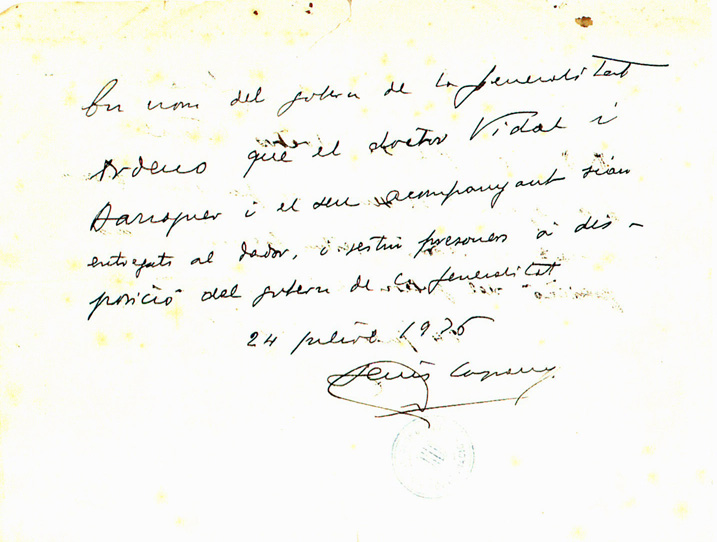 En nom del govern de la Generalitat
ordeno que el doctor Vidal i
Barraquer i el seu acompanyant sian
entregats al dador, i restin presoners a dis-
posició del govern de la Generalitat
24 juliol 1936
Lluís Companys